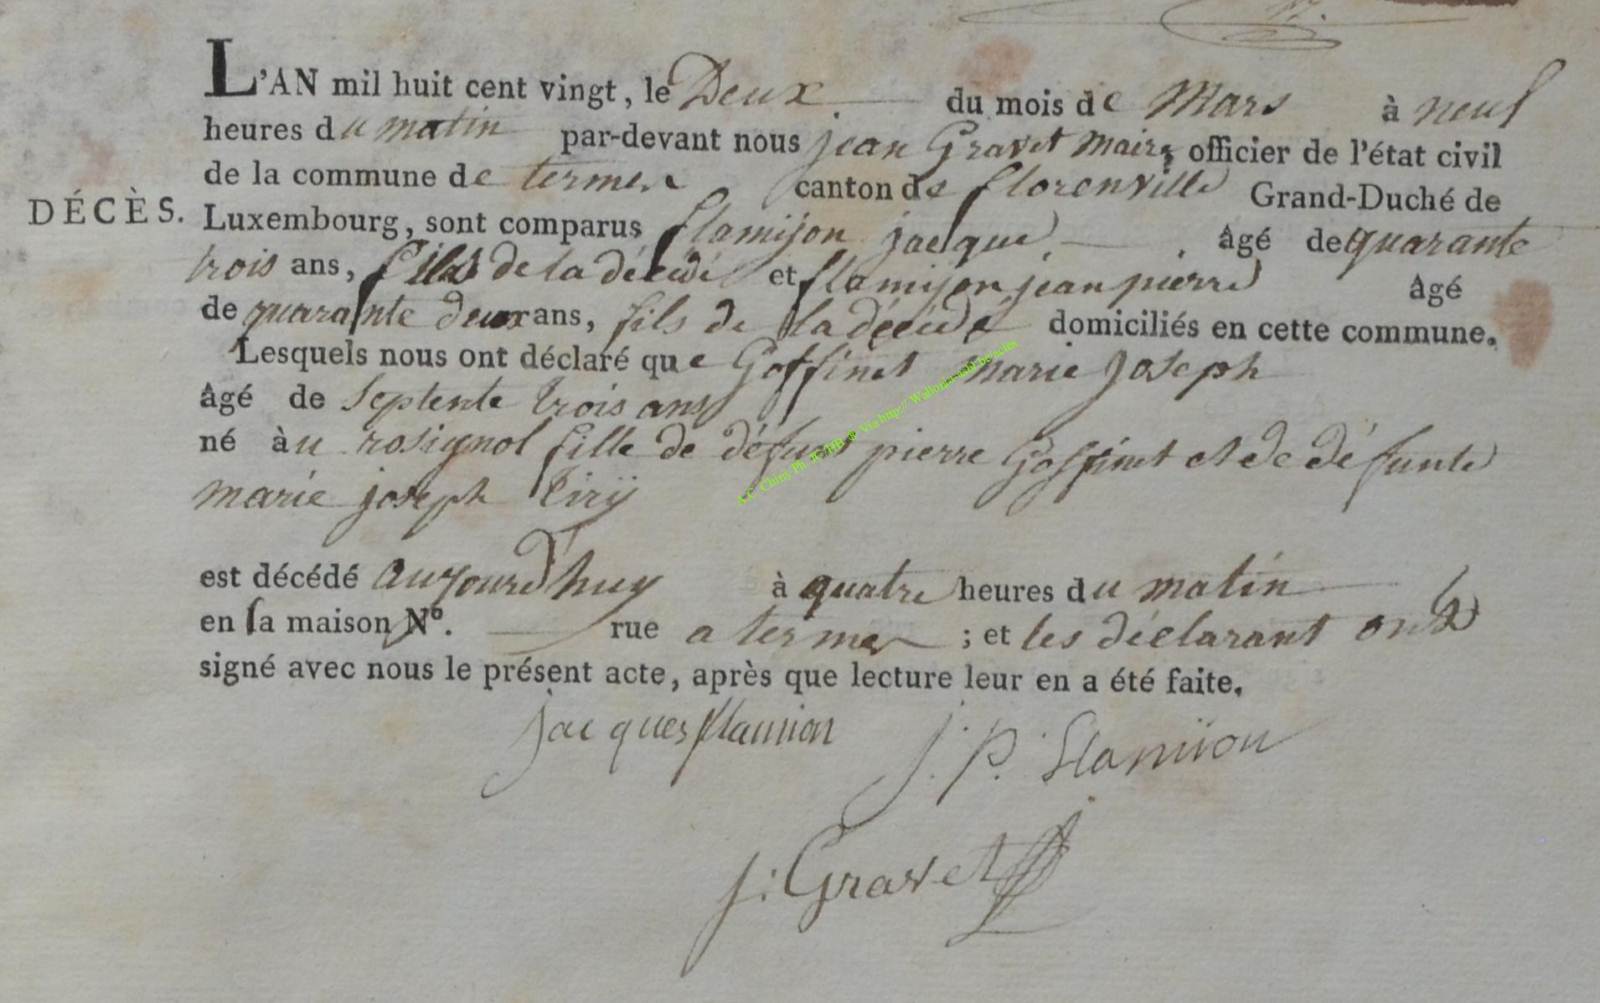 L'AN mil huit cent vingt, le Deux du mois de Mars à neuf
heures du matin par-devant nous jean Gravet maire officier de l'état civil
de la commune de termes canton de florenville Grand-Duché de
DÉCÈS. Luxembourg, sont comparus flamijon jacque âgé de quarante
trois ans, fils de la décédé et flamijon jean pierre âgé
de quarante deux ans, fils de la décédé domiciliés en cette commune.
Lesquels nous ont déclaré que Goffinet marie Joseph
âgé de septente trois ans
né àu rosignol fille de défunt pierre Goffinet et de défunte
marie joseph tirÿ
est décédé aujourd'huy à quatre heures du matin
en sa maison Nº. rue a termes ; et les déclarant ont
signé avec nous le présent acte, après que lecture leur en a été faite.
jacques flamion J. P. Flamion
j: Gravet